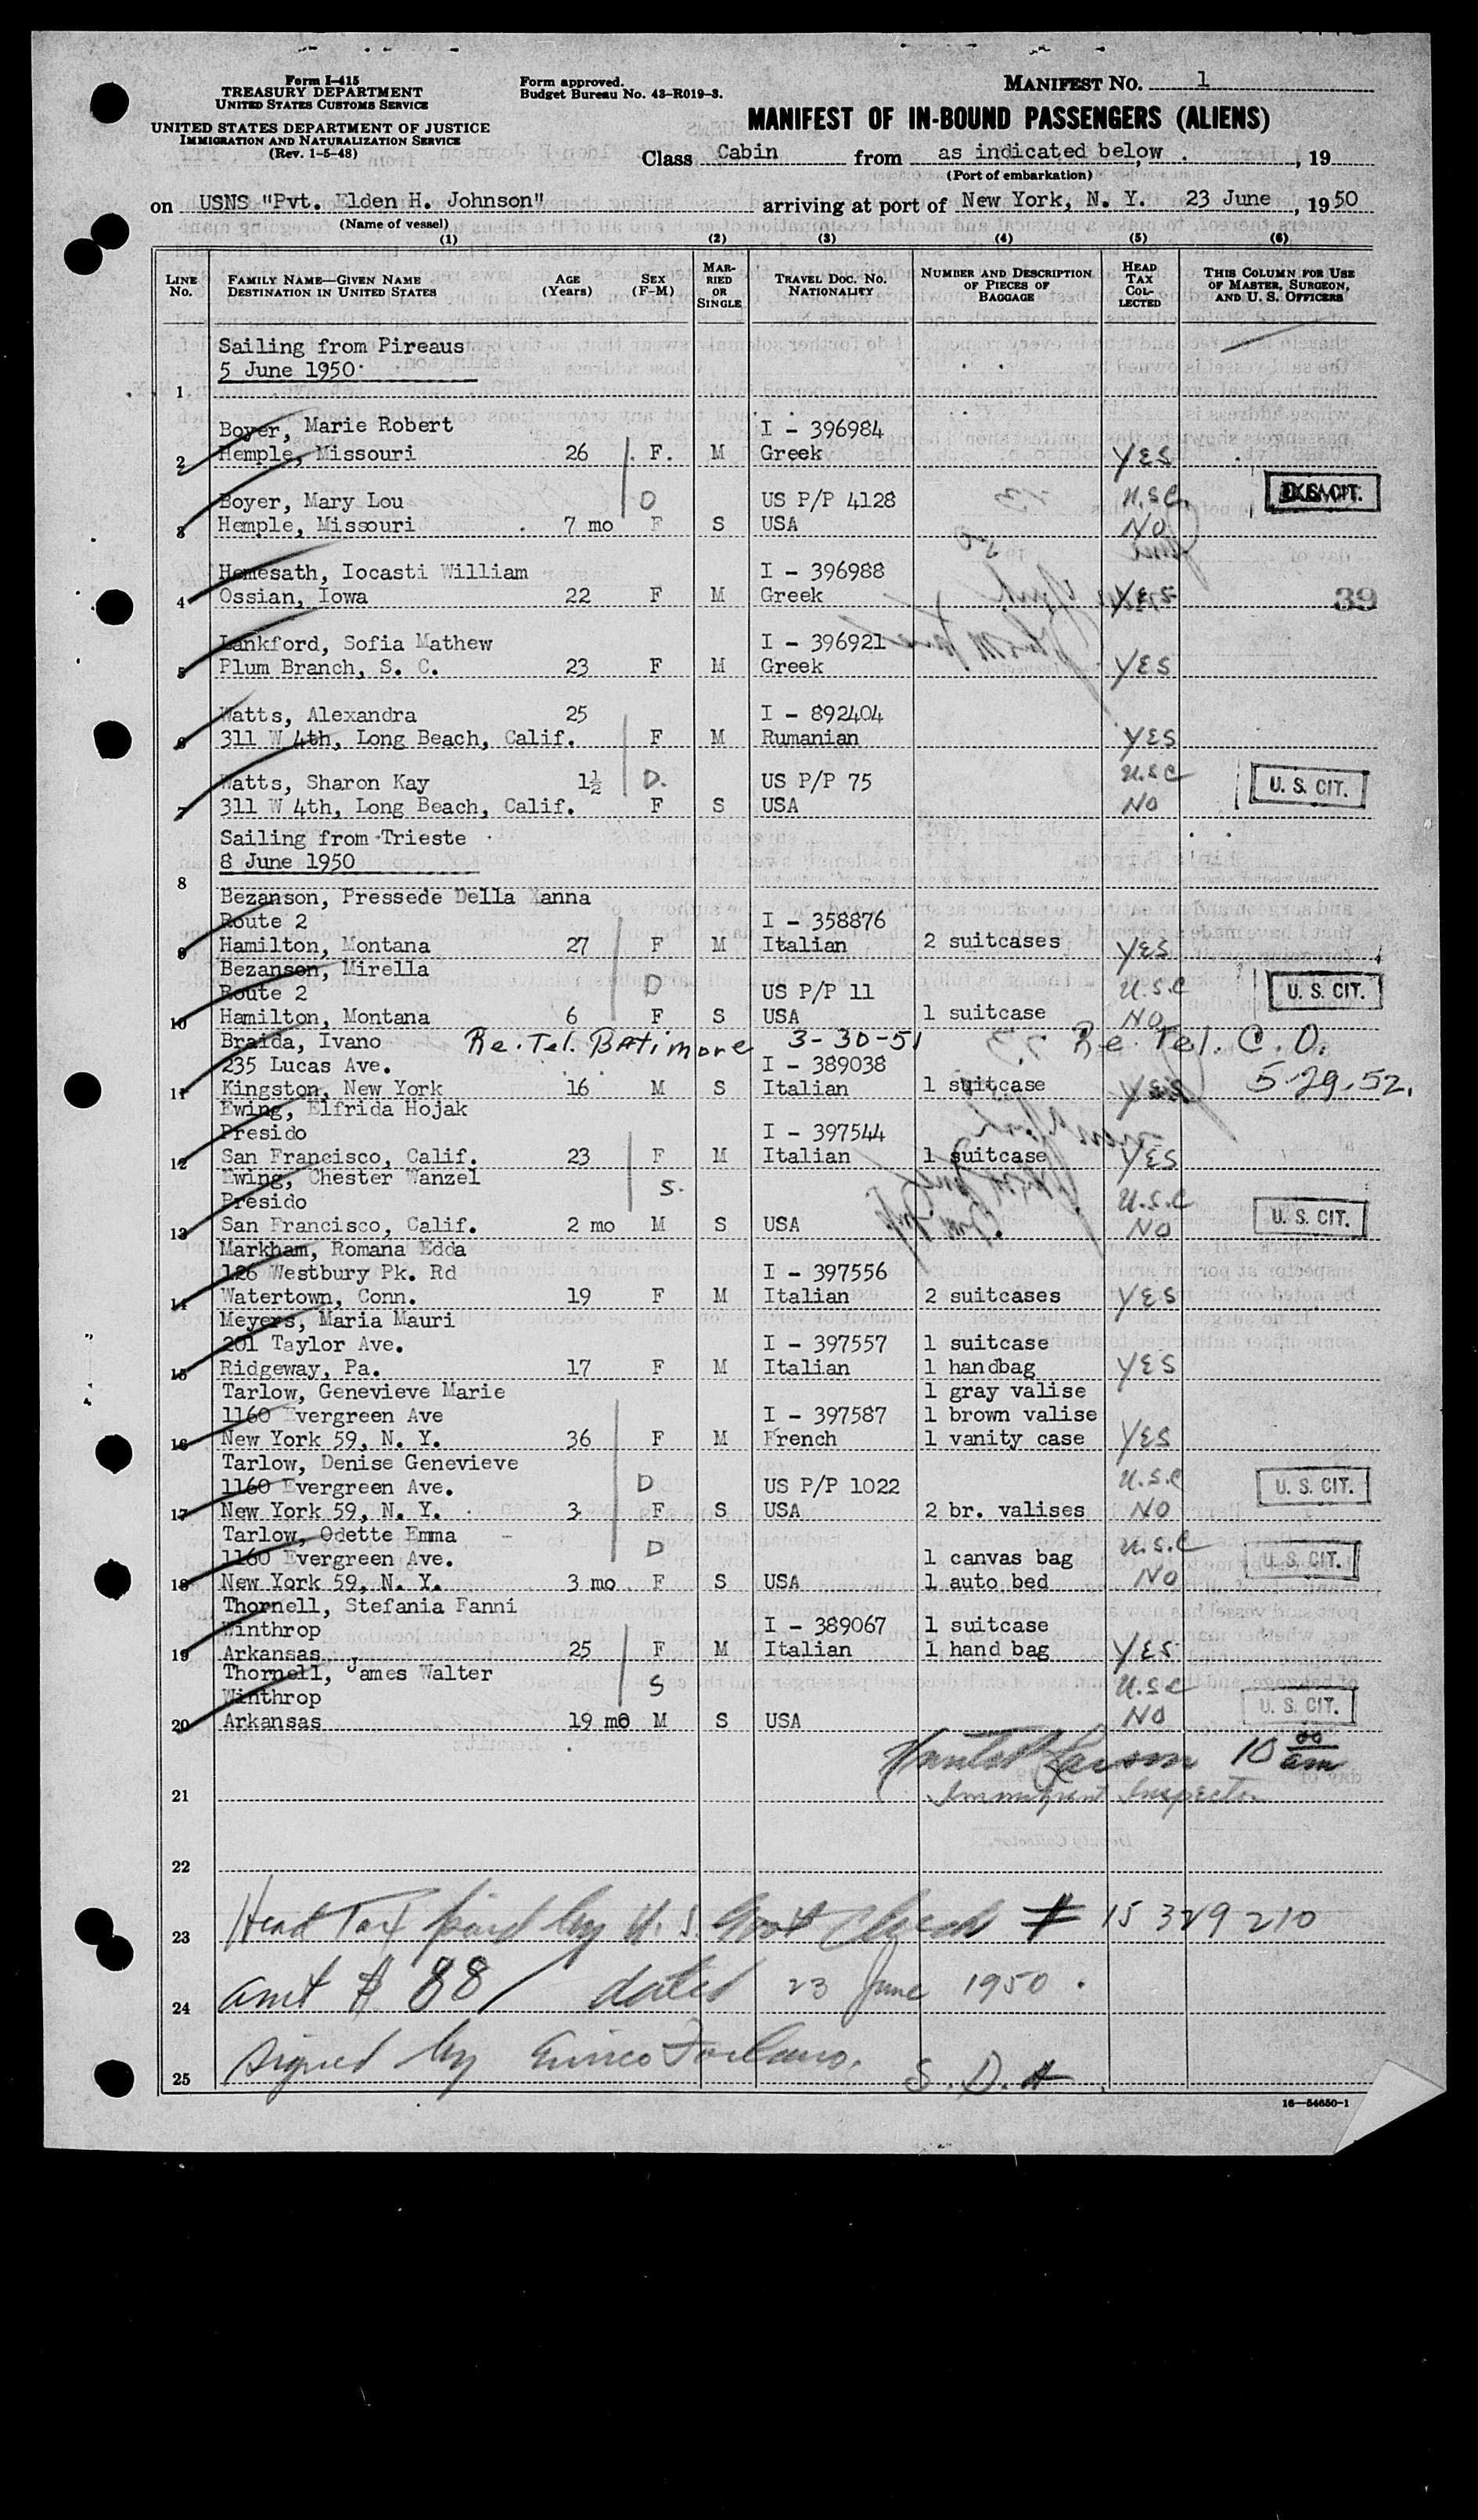 Form I-415
TREASURY DEPARTMENT
UNITED STATES CUSTOMS SERVICE
UNITED STATES DEPARTMENT OF JUSTICE
IMMIGRATION AND NATURALIZATION SERVICE
(Rev. 1-5-48)
Form approved.
Budget Bureau No. 43-R019-3.
MANIFEST NO. 1
MANIFEST OF IN-BOUND PASSENGERS (ALIENS)
Class Cabin from as indicated below, 19
(Port of embarkation)
on USNS "Pvt. Elden H. Johnson" arriving at port of New York, N. Y. 23 June, 1950
(Name of vessel)
(1) (2) (3) (4) (5) (6)
LINE No. FAMILY NAME—GIVEN NAME DESTINATION IN UNITED STATES AGE (Years) SEX (F-M) MARRIED OR SINGLE TRAVEL DOC. NO. NATIONALITY NUMBER AND DESCRIPTION OF PIECES OF BAGGAGE HEAD TAX COLLECTED THIS COLUMN FOR USE OF MASTER, SURGEON, AND U. S. OFFICERS
Sailing from Pireaus
5 June 1950
1
Boyer, Marie Robert I - 396984
2 Hemple, Missouri 26 F. M Greek YES
Boyer, Mary Lou D US P/P 4128 U.S.C. U.S. CIT.
3 Hemple, Missouri 7 mo F S USA NO
Hemesath, Iocasti William I - 396988
4 Ossian, Iowa 22 F M Greek YES 39
Lankford, Sofia Mathew I - 396921
5 Plum Branch, S. C. 23 F M Greek YES
Watts, Alexandra 25 I - 892404
6 311 W 4th, Long Beach, Calif. F M Rumanian YES
Watts, Sharon Kay 1½ D. US P/P 75 U.S.C U. S. CIT.
7 311 W 4th, Long Beach, Calif. F S USA NO
Sailing from Trieste
8 June 1950
8
Bezanson, Pressede Della Zanna
Route 2 I - 358876
9 Hamilton, Montana 27 F M Italian 2 suitcases YES
Bezanson, Mirella
Route 2 D US P/P 11 U.S.C U. S. CIT.
10 Hamilton, Montana 6 F S USA 1 suitcase NO
Braida, Ivano Re. Tel. Batimore 3-30-51 Re. Tel. C. O.
235 Lucas Ave. I - 389038 5-29-52.
11 Kingston, New York 16 M S Italian 1 suitcase YES
Ewing, Elfrida Hojak
Presido I - 397544
12 San Francisco, Calif. 23 F M Italian 1 suitcase YES
Ewing, Chester Wanzel S.
Presido U.S.C U. S. CIT.
13 San Francisco, Calif. 2 mo M S USA NO
Markham, Romana Edda
126 Westbury Pk. Rd I - 397556
14 Watertown, Conn. 19 F M Italian 2 suitcases YES
Meyers, Maria Mauri
201 Taylor Ave. I - 397557 1 suitcase
15 Ridgeway, Pa. 17 F M Italian 1 handbag YES
Tarlow, Genevieve Marie 1 gray valise
1160 Evergreen Ave I - 397587 1 brown valise
16 New York 59, N. Y. 36 F M French 1 vanity case YES
Tarlow, Denise Genevieve
1160 Evergreen Ave. D US P/P 1022 U.S.C U. S. CIT.
17 New York 59, N. Y. 3 F S USA 2 br. valises NO
Tarlow, Odette Emma
1160 Evergreen Ave. D 1 canvas bag U.S.C U. S. CIT.
18 New York 59, N. Y. 3 mo F S USA 1 auto bed NO
Thornell, Stefania Fanni
Winthrop I - 389067 1 suitcase
19 Arkansas 25 F M Italian 1 hand bag YES
Thornell, James Walter S U.S.C
Winthrop U. S. CIT.
20 Arkansas 19 mo M S USA NO
Larson 10 00 am
21 Immigrant Inspector
22
23 Head Tax paid by U. S. Govt Check # 15 329 210
24 amt $ 88/ dated 23 June 1950.
25 signed by S. D. A.
16—54650-1